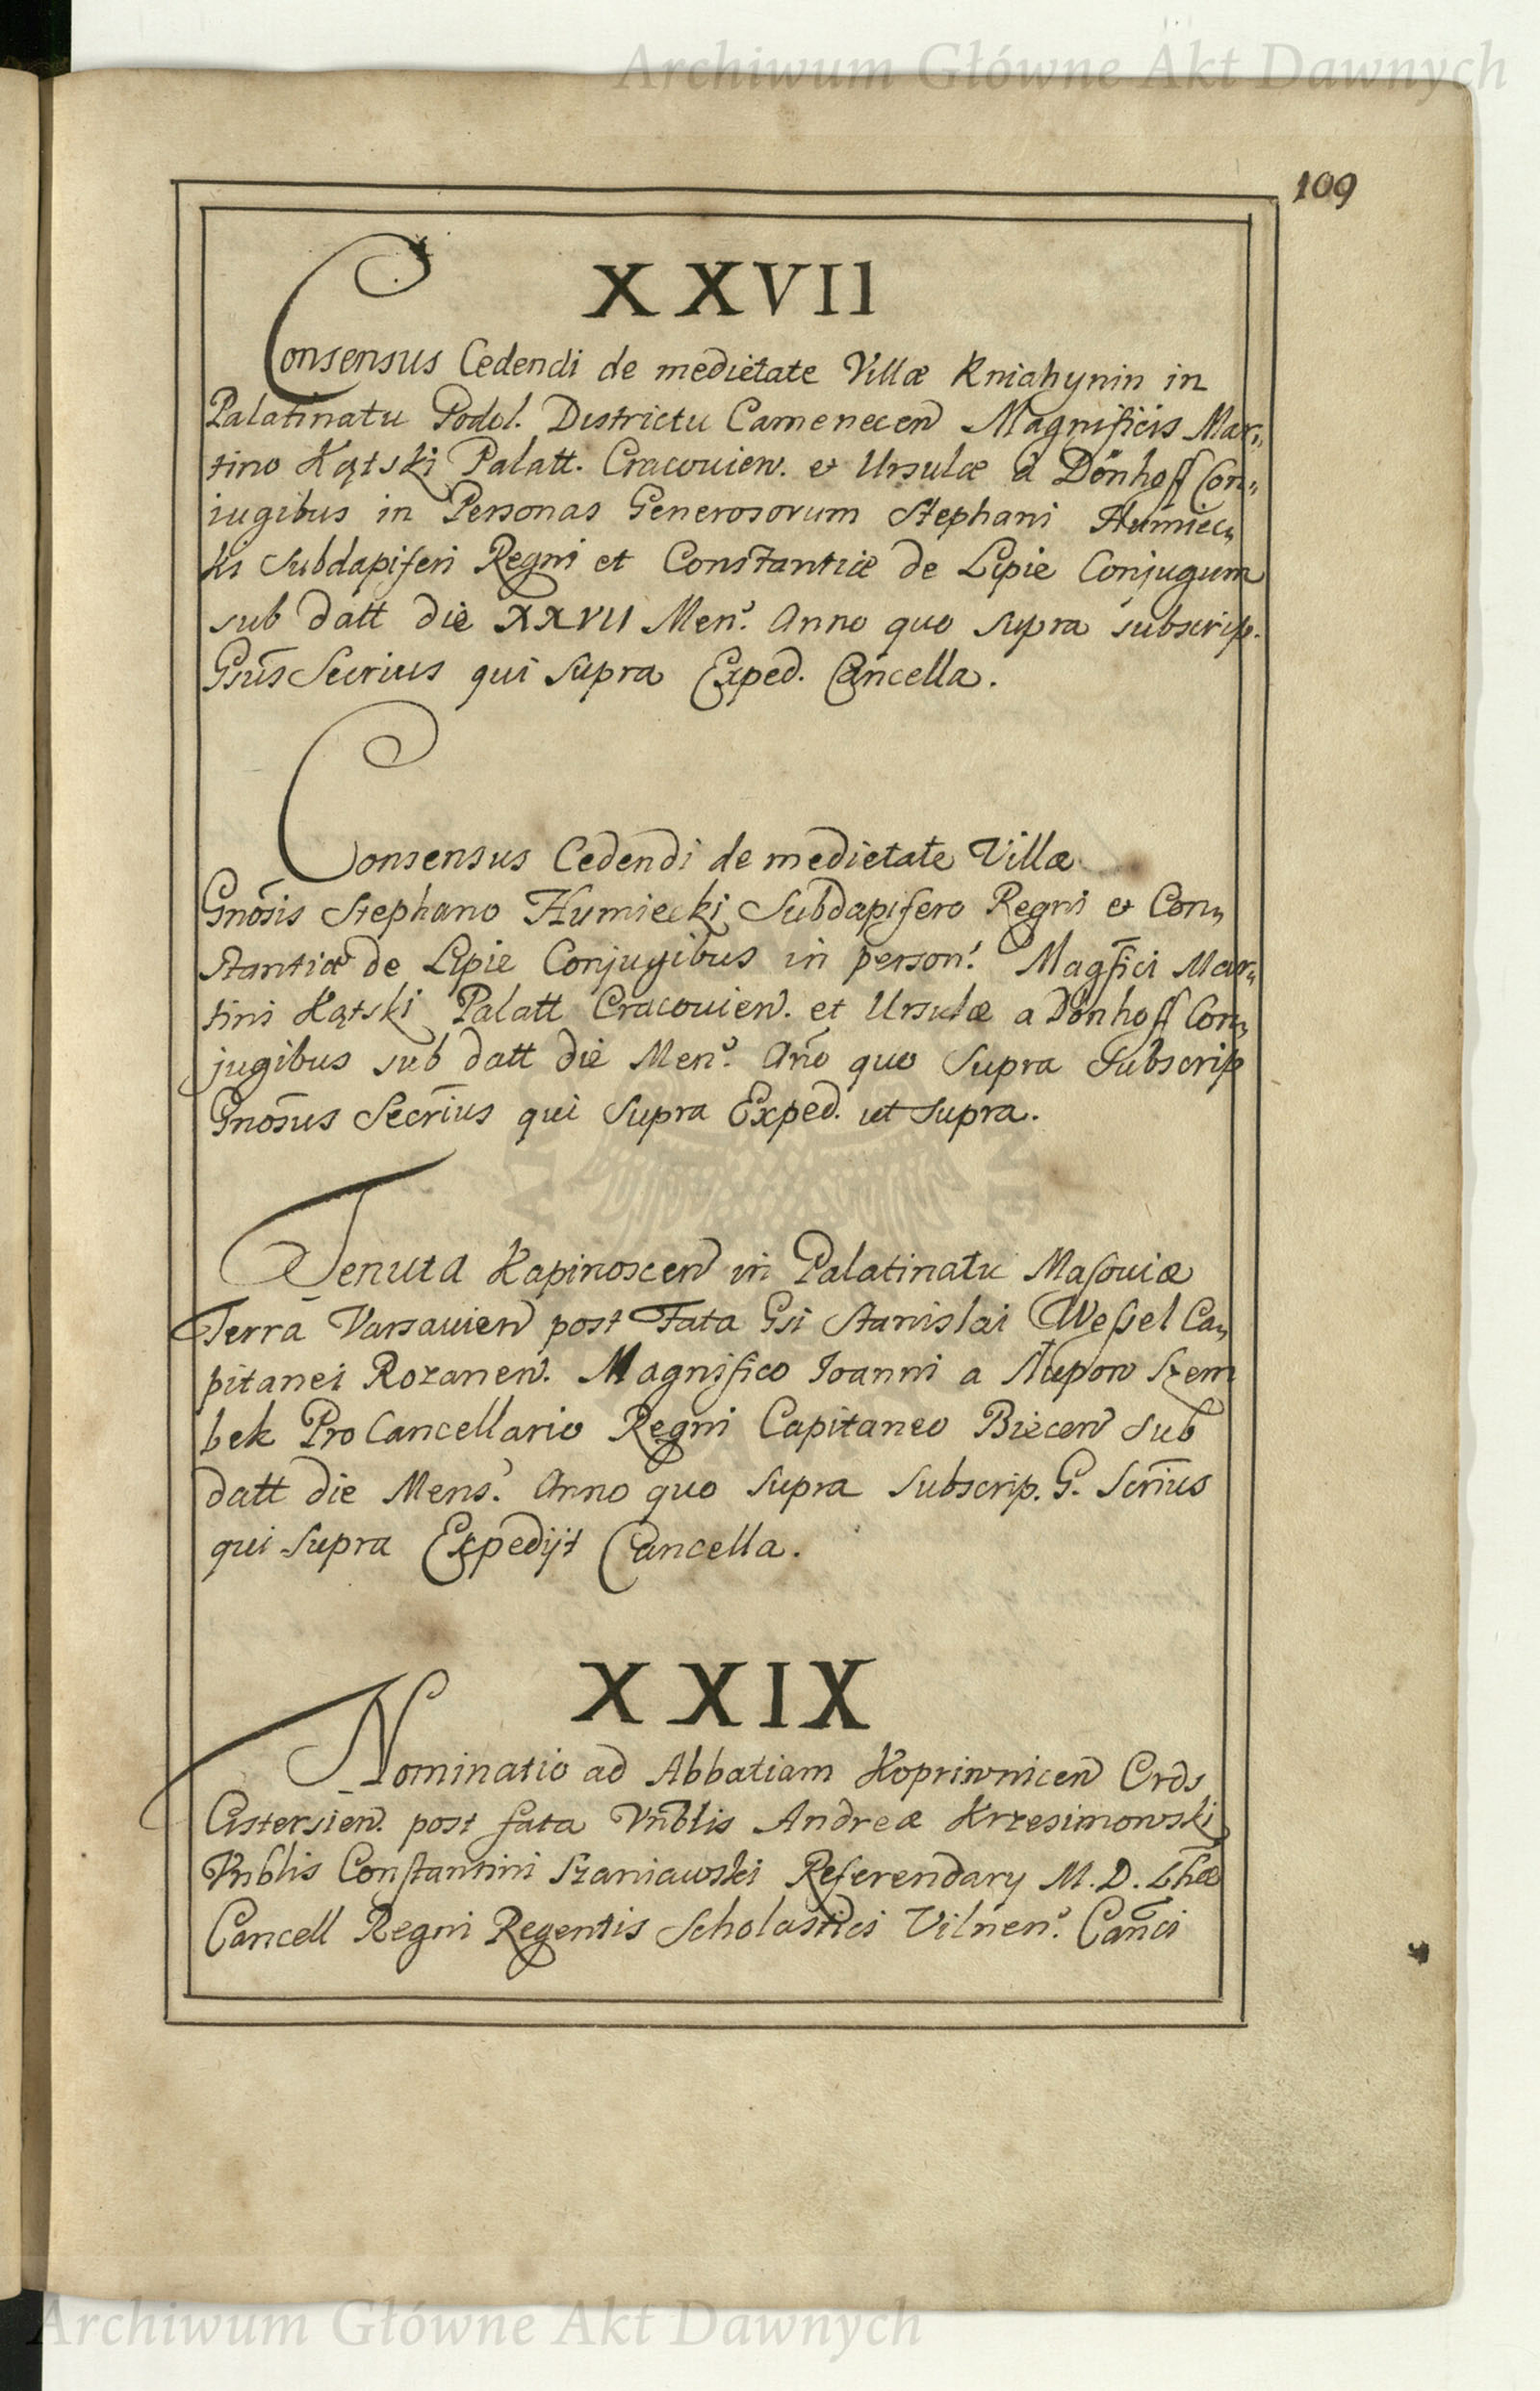 Archiwum Główne Akt Dawnych
109
XXVII
Consensus Cedendi de medietate Villæ Kniahynin in
Palatinatu Podol. Districtu Camenecen Magnificis Mar„
tino Kątski Palatt. Cracovien. et Ursulæ a Dönhoff Con„
iugibus in Personas Generosorum Stephani Humiec„
ki Subdapiferi Regni et Constantiæ de Lipie Conjugum
sub datt die XXVII Mens. Anno quo supra subscrip.
Gsus Secrius qui supra Exped. Cancella.
Consensus Cedendi de medietate Villæ
Gnosis Stephano Humiecki Subdapifero Regni et Con„
stantiæ de Lipie Conjugibus in person. Magfici Mar„
tini Kątski Palatt Cracovien. et Ursulæ a Dönhoff Con„
jugibus sub datt die Mens. Año quo supra Subscrip
Gnosus Secrius qui supra Exped. ut supra.
Tenuta Kapinoscen in Palatinatu Masoviæ
Terra Varsavien post Fata Gsi Stanislai Wessel Ca„
pitanei Rozanen. Magnifico Ioanni a Słupow Szem
bek ProCancellario Regni Capitaneo Biecen sub
datt die Mens. Anno quo supra subscrip. G. Scrius
qui supra Expedijt Cancella.
XXIX
Nominatio ad Abbatiam Kopriwnicen Ords
Cistersien. post fata Vnblis Andreæ Krzesimowski
Vnblis Constantini Szaniawski Referendary M. D. Lhæ
Cancell Regni Regentis Scholastici Vilnen. Canci
Archiwum Główne Akt Dawnych